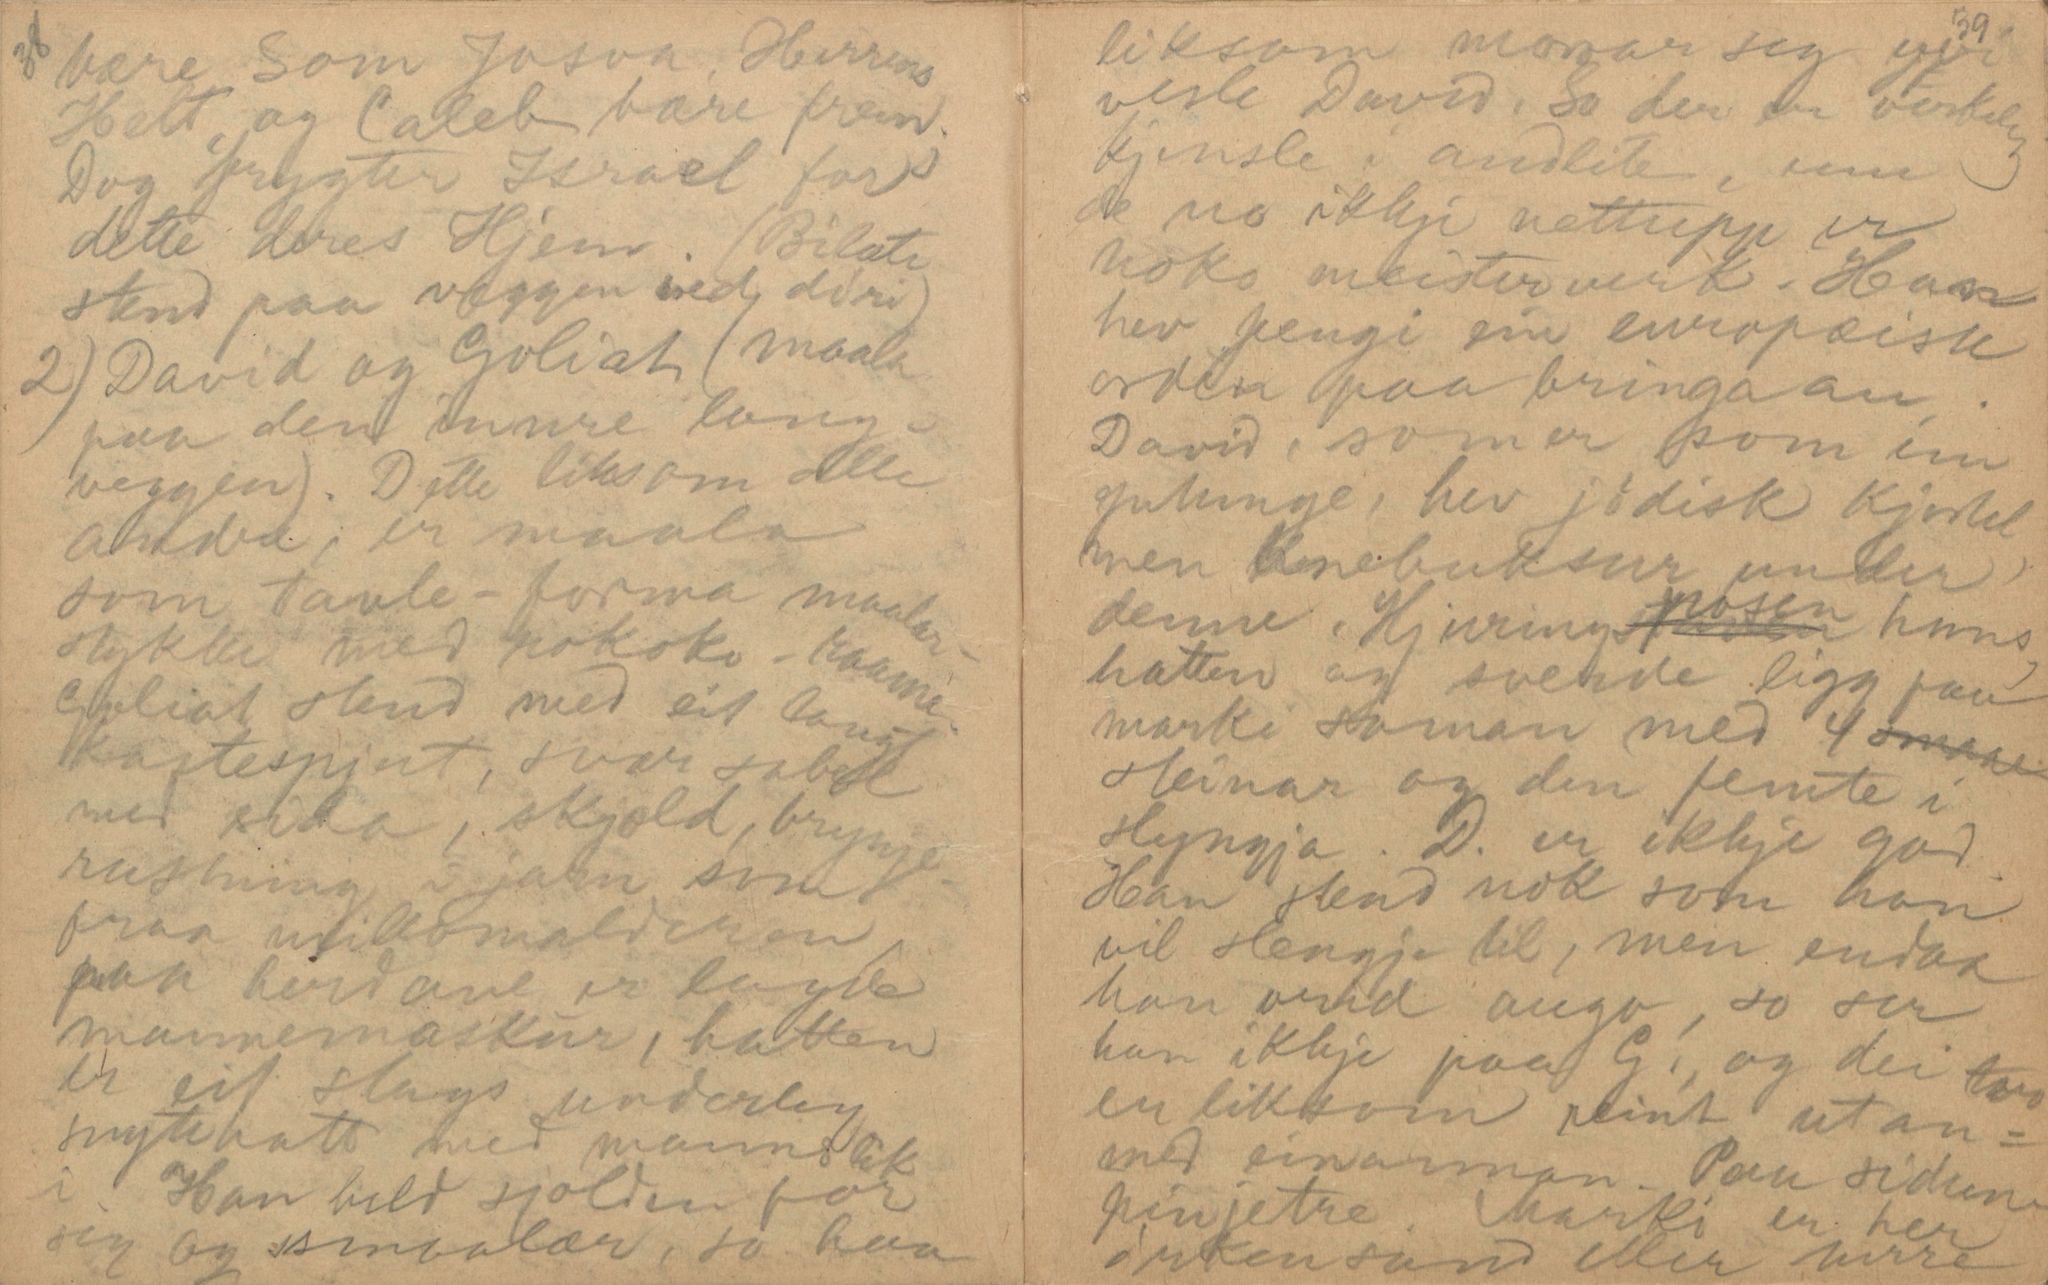 38
være Som Josva, Herrens
Helt, og Caleb bære frem.
Dog frygter Israel for
dette deres Hjem. (Bilæte
stend paa veggen ved döri)
2) David og Goliat (maala
paa den innre lang-
veggen). Dette liksom alle
andra, er maala
som tavle-forma maalar-
stykke med rokoko-raame.
Goliat stend med eit langt
kastespjut, svær sabel
med sida, skjold, brynje-
rustning i jarn som
fraa millomalderen,
paa herdane er lagde
mannemaskur, hatten
er eit slags underleg
snytehatt med manns
i. Han held sjolden for
seg og smaalær, so haa
39
liksom monar seg yvi
vesle David. So der er verkeleg
kjensle i andlite, um
de no ikkje nettupp er
noko meisterverk. Haan
hev fengi ein europæisk
orden paa bringa au.
David, som er som ein
gutunge, hev jödisk kjortel
men knebuksur under
denne. Hjurings posen hans,
hatten og sveide ligg paa
marki saman med 4 smaae
steinar og den femte i
slyngja. D. er ikkje god.
Han stend nok som han
vil slengje til, men endaa
han vend augo, so ser
han ikkje paa G., og dei tvo
er liksom reint utan=
med einannan. Paa sidune
pinjetre. Marki er her
örkensand eller turre